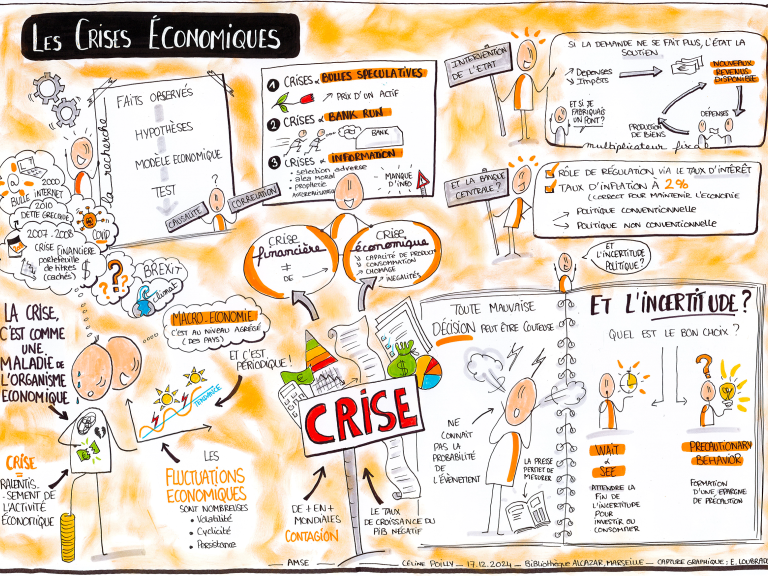 LES CRISES ÉCONOMIQUES
la recherche
FAITS OBSERVÉS
HYPOTHÈSES
MODÈLE ECONOMIQUE
TEST
?
CAUSALITÉ
CORRÉLATION
1 CRISES & BULLES SPECULATIVES
↗ PRIX D'UN ACTIF
2 CRISES & BANK RUN
BANK
3 CRISES & INFORMATION
• sélection adverse
• aléa moral
• prophétie
autoréalisatrice
MANQUE
D'INFO
INTERVENTION
DE L'ETAT
SI LA DEMANDE NE SE FAIT PLUS, L'ÉTAT LA
SOUTIEN.
↗ Depenses
↘ Impôts
NOUVEAUX
REVENUS
DISPONIBLE
ET SI JE
FABRIQUAIS
UN PONT?
PRODUCTION
DE BIENS
DÉPENSES
multiplicateur fiscal
ET LA BANQUE
CENTRALE?
RÔLE DE RÉGULATION VIA LE TAUX D'INTÉRÊT
TAUX D'INFLATION À 2%
(CORRECT POUR MAINTENIR L'ÉCONOMIE
→ POLITIQUE CONVENTIONNELLE
→ POLITIQUE NON CONVENTIONNELLE
ET
L'INCERTITUDE
POLITIQUE?
2000
BULLE INTERNET
2010
DETTE GRECQUE
COVID
2007-2008
CRISE FINANCIÈRE
portefeuille
de titres
(cachés)
$
??
BREXIT
Climat
Crise
financière
≠
DE
Crise
économique
↘ CAPACITÉ DE PRODUCT°
↘ CONSOMMATION
↗ CHOMAGE
↗ INÉGALITÉS
LA CRISE,
C'EST COMME
UNE
MALADIE DE
L'ORGANISME
ECONOMIQUE
MACRO-ECONOMIE
C'EST AU NIVEAU AGRÉGÉ
(DES PAYS)
ET C'EST
PÉRIODIQUE!
TENDANCE
CRISE
=
RALENTIS-
SEMENT DE
L'ACTIVITÉ
ÉCONOMIQUE
LES
FLUCTUATIONS
ECONOMIQUES
SONT NOMBREUSES
• Volatilité
• Cyclicité
• Persistance
€
$
CRISE
DE + EN +
MONDIALES
CONTAGION
LE TAUX
DE CROISSANCE DU
PIB NÉGATIF
TOUTE MAUVAISE
DÉCISION PEUT ÊTRE COUTEUSE
NE
CONNAIT
PAS LA
PROBABILITÉ
DE
L'ÉVÉNEMENT
LA PRESSE
PERMET DE
MESURER
ET L'INCERTITUDE?
QUEL EST LE BON CHOIX?
?
WAIT
&
SEE
ATTENDRE LA
FIN DE
L'INCERTITUDE
POUR
INVESTIR OU
CONSOMMER
PRECAUTIONARY
BEHAVIOR
FORMATION
D'UNE EPARGNE
DE PRÉCAUTION
AMSE — CÉLINE POILLY — 17.12.2024 — BIBLIOTHÈQUE ALCAZAR, MARSEILLE — CAPTURE GRAPHIQUE : E. LOUBRADOU